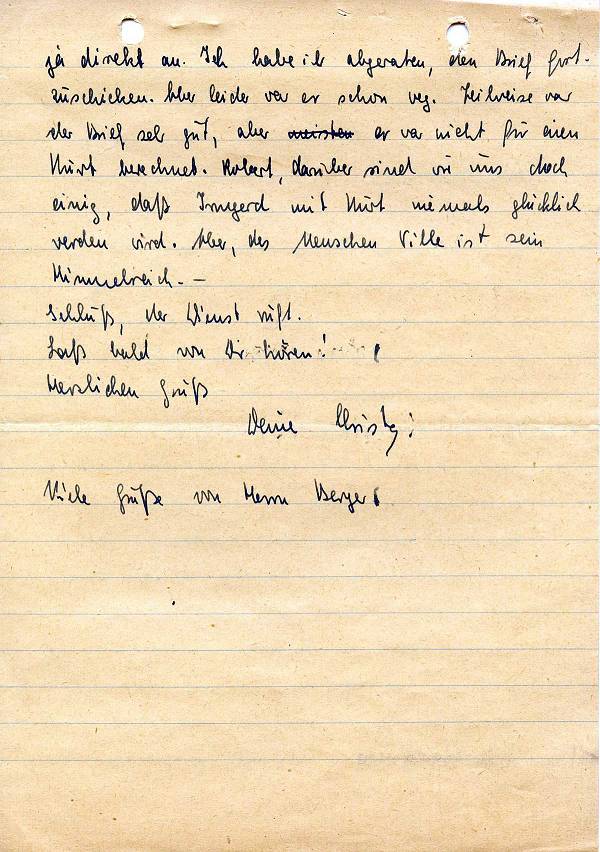 ja direkt an. Ich habe ihr abgeraten, den Brief fort-
zuschicken. Aber leider war er schon weg. Teilweise war
der Brief sehr gut, aber meisten er war nicht für einen
Kurt berechnet. Robert, darüber sind wir uns doch
einig, daß Irmgard mit Kurt niemals glücklich
werden wird. Aber, des Menschen Wille ist sein
Himmelreich. –
Schluß, der Dienst ruft.
Laß bald von Dir hören!
Herzlichen Gruß
Deine Christa
Viele Grüße von Herrn Berger